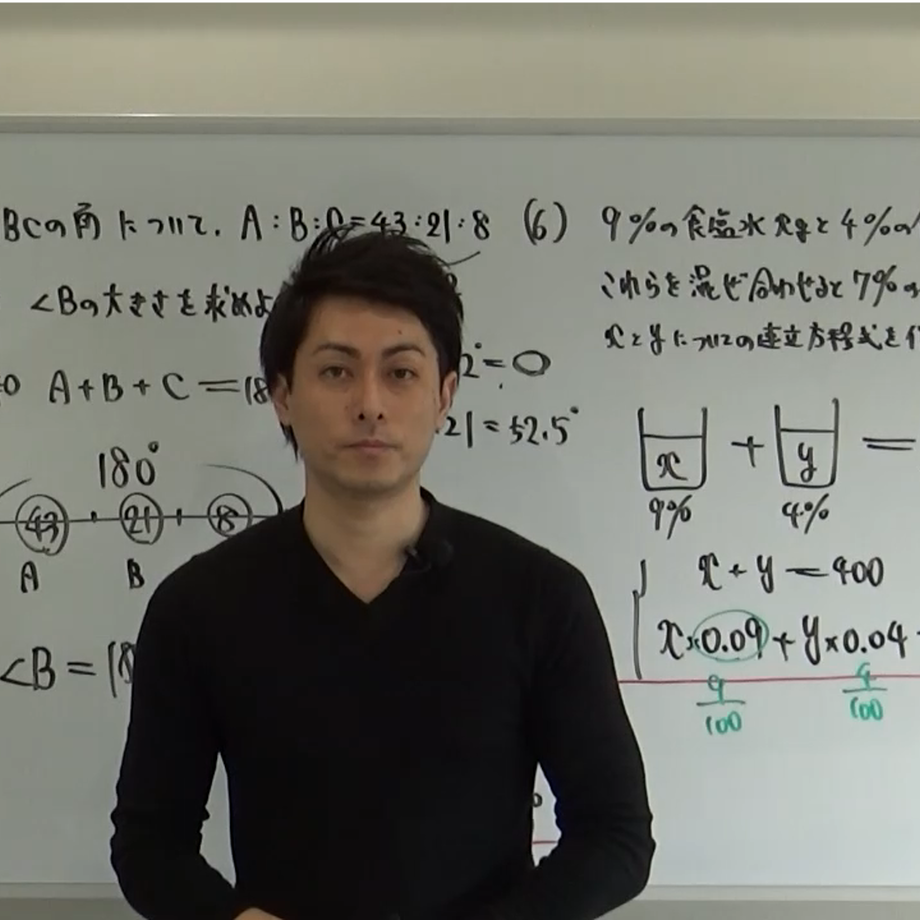 BCの角について. A:B:C=43:21:8
∠Bの大きさを求めよ
A+B+C=18
2°=0
21=52.5°
180°
43 21 8
A B
∠B=18
(6) 9%の食塩水xgと4%の
これらを混ぜ合わせると7%の
xとyについての連立方程式を作
x + y =
9% 4%
x+y=400
x×0.09+y×0.04
9/100 4/100